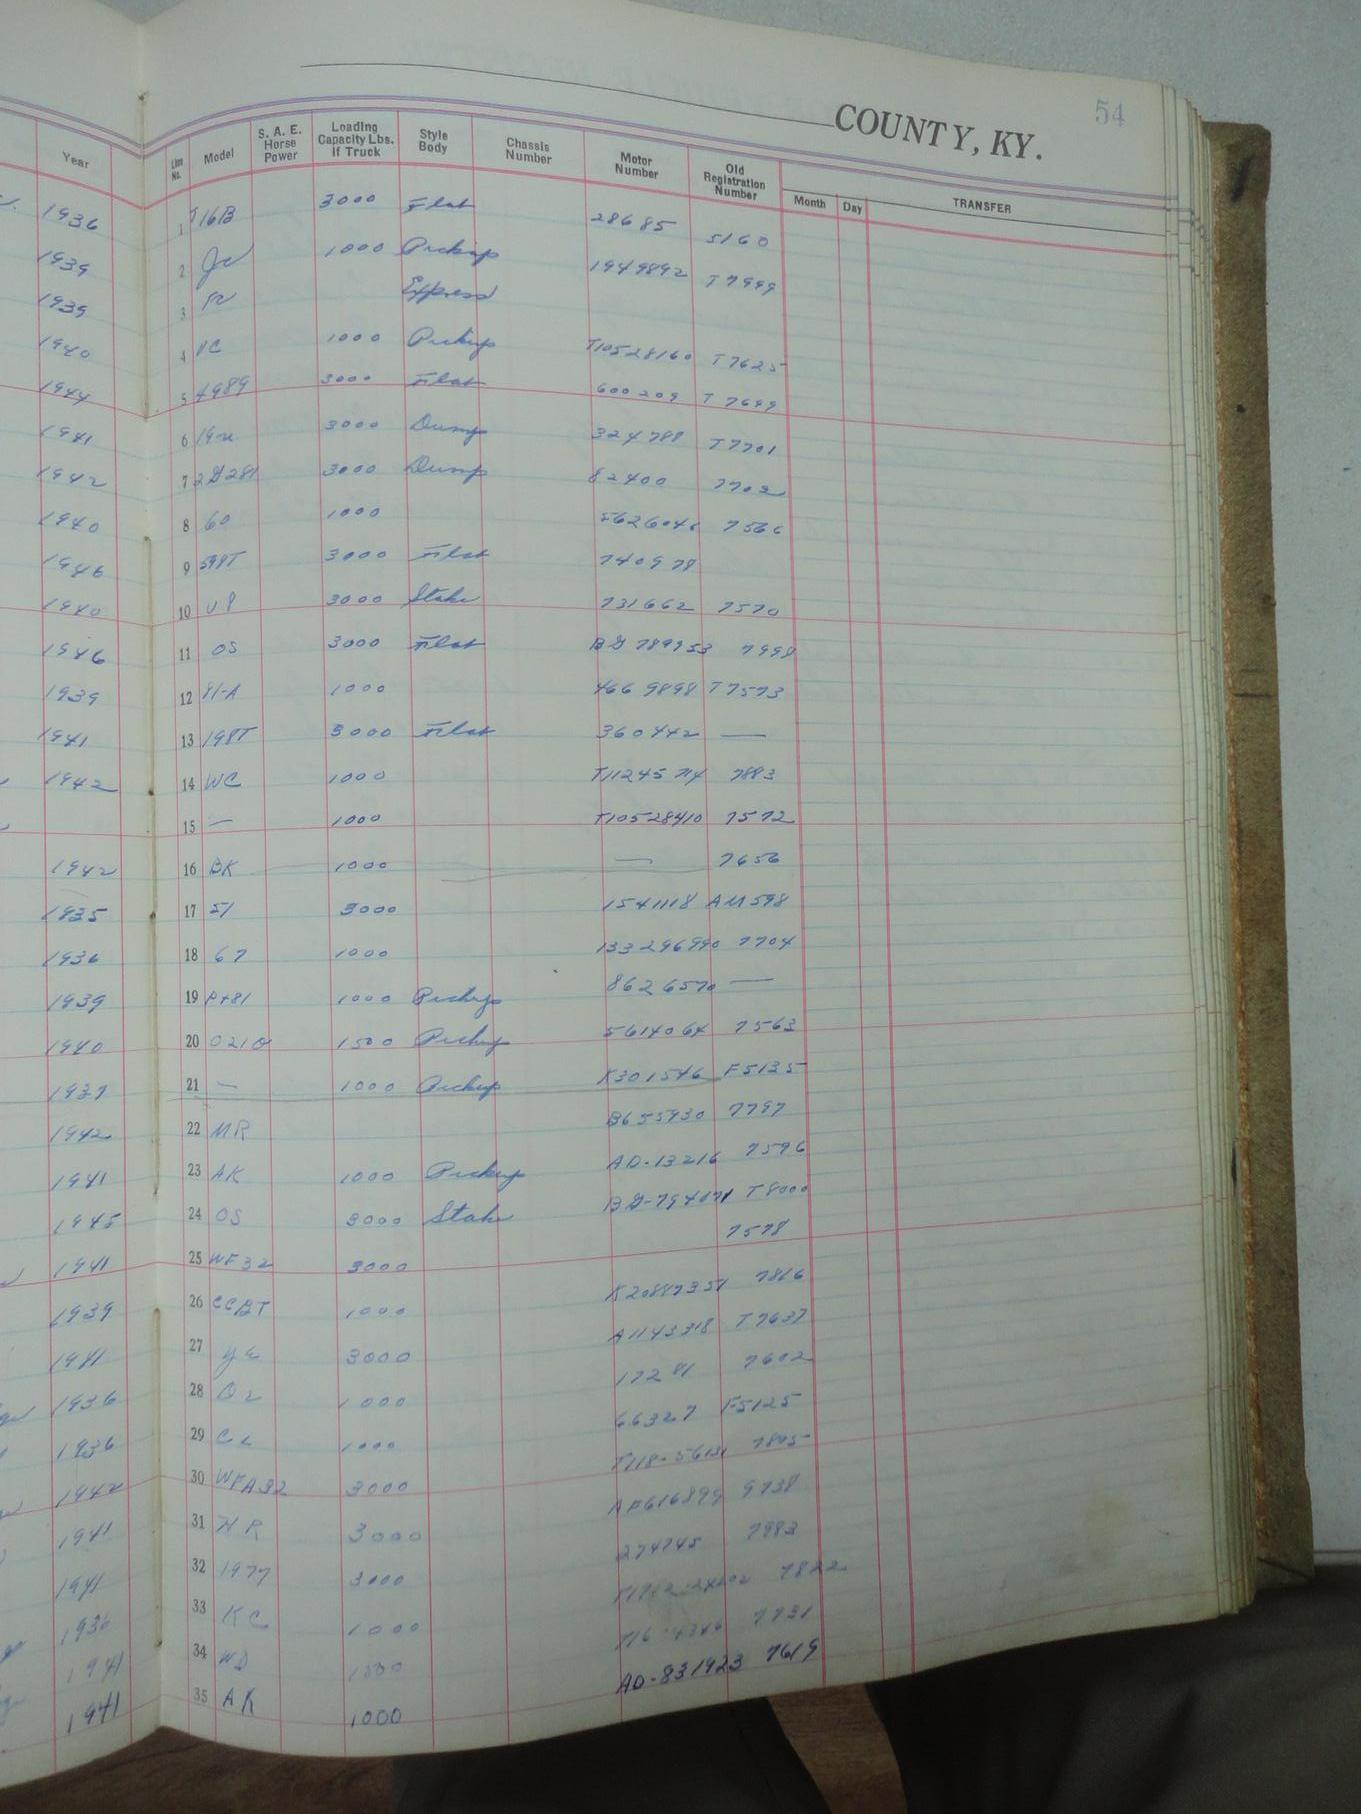 54
COUNTY, KY.
Year Line No. Model S. A. E. Horse Power Loading Capacity Lbs. if Truck Style Body Chassis Number Motor Number Old Registration Number Month Day TRANSFER
1936 1 T16B 3000 Flat 28685 5160
1939 2 1000 Pickup 1949892 T7999
1939 3 Express
1940 4 VC 1000 Pickup T10528160 T7625
1944 5 4989 3000 Flat 600209 T7699
1941 6 3000 Dump 324788 T7701
1942 7 2G281 3000 Dump 82400 7702
1940 8 60 1000 7566
1946 9 598T 3000 Flat 740978
1940 10 U8 3000 Stake 731662 7570
1946 11 OS 3000 Flat BG 789953 7998
1939 12 81-A 1000 466 9898 T7573
1941 13 198T 3000 Flat 360442 —
1942 14 WC 1000 7883
15 — 1000 T10528410 7572
1942 16 BK 1000 — 7656
1935 17 51 3000 1541118 AM598
1936 18 67 1000 133296990 7704
1939 19 PT81 1000 Pickup 8626570 —
1940 20 0210 1500 Pickup 5614064 7563
1937 21 — 1000 Pickup K301546 F5135
1942 22 MR B655930 7797
1941 23 AK 1000 Pickup AD-13216 7596
1945 24 OS 3000 Stake T8000
1941 25 WF32 3000 7578
1939 26 CCBT 1000 K20887351 7816
1941 27 YE 3000 A1143318 T7637
1936 28 1000 17281 7602
1936 29 1000 66327 F5125
1942 30 WFA32 3000 7805
1941 31 3000 9738
1941 32 1977 3000 274745 7983
1936 33 KC 1000 7822
1941 34 WD 1000 7731
1941 35 AK 1000 AD-831923 7619